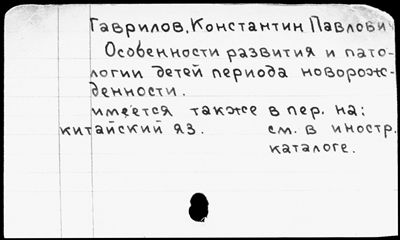 Гаврилов, Константин Павлович
Особенности развития и пато-
логии детей периода новорож-
денности.
имеется также в пер. на:
китайский яз. см. в иностр.
каталоге.